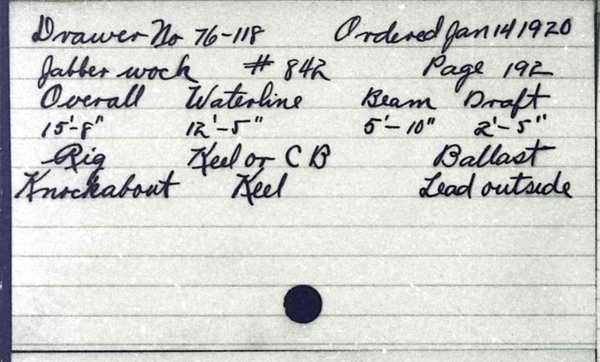 Drawer No 76-118 Ordered Jan 14 1920
Jabberwock # 842 Page 192
Overall Waterline Beam Draft
15'-8" 12'-5" 5'-10" 2'-5"
Rig Keel or C B Ballast
Knockabout Keel Lead outside